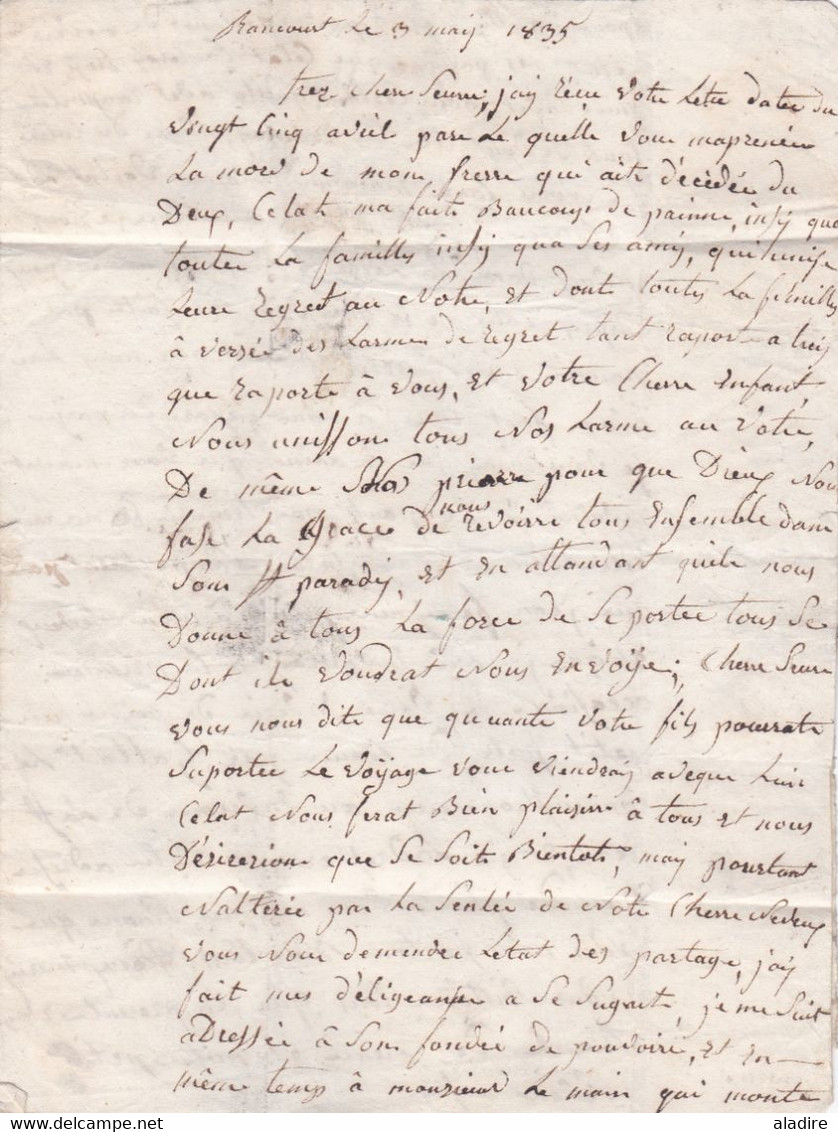 Rancourt le 3 maij 1835
trez chere Seure, jaij réçu votre Letre datée du
vingt cinq avril pare Le quelle vous maprenée
La more de mone frerre qui aite décèdée du
Deux, Celat ma faite Baucoups de painne, insy que
toutes La familles insy qua Ses amis, qui unise
Leure regret au Notre, et dont toutes La familles
à versée des Larme de regret tant raporte a luij
que raporte à vous, et votre Cherre enfant,
Nous unissons tous Nos Larme au votre,
De même Nos prierre pour que Dieux Nous
fase La Grace de nous revoirre tous ensemble dans
Sons St paradis, et en attandant quile nous
Donne à tous La force de Se portée tous Se
Dont ile voudrat Nous envoÿe; Cherre Seure
vous nous dite que quuante votre fils pourrate
Suportée Le voÿage vous viendraij aveque Luis
Celat Nous ferat Bien plaisirre à tous et nous
Désirerion que Se Soite Bientots, maij pourtant
Naltérée par La Sentée de Notre Cherre Neveux
vous Nous demendée Letat des partage, jaij
fait mes déligeanse a Se Sugaite, je me Suit
aDressée à Sons fondée de pouvoire, et en
même temps à monsieur Le maire qui monte
aladire